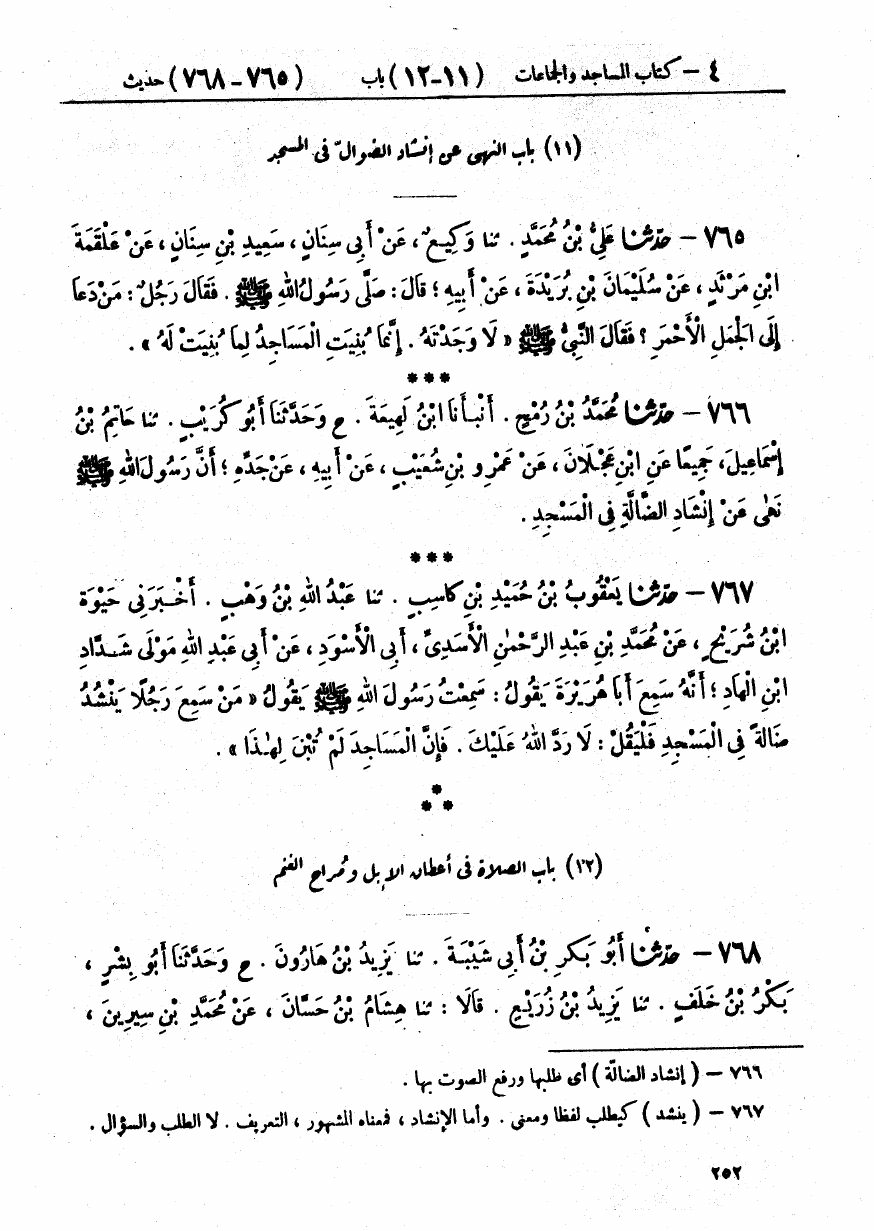 ٤ – كتاب المساجد والجماعات (١١–١٢) باب (٧٦٥–٧٦٨) حديث
(١١) باب النهى عن إنشاد الضوالّ فى المسجد
٧٦٥ – حَدَّثَنَا عَلِىُّ بْنُ مُحَمَّدٍ . ثنا وَكِيعٌ ، عَنْ أَبِى سِنَانٍ ، سَعِيدِ بْنِ سِنَانٍ ، عَنْ عَلْقَمَةَ
ابْنِ مَرْثَدٍ ، عَنْ سُلَيْمَانَ بْنِ بُرَيْدَةَ ، عَنْ أَبِيهِ ؛ قَالَ : صَلَّى رَسُولُ اللهِ ﷺ . فَقَالَ رَجُلٌ : مَنْ دَعَا
إِلَى الْجَمَلِ الْأَحْمَرِ ؟ فَقَالَ النَّبِىُّ ﷺ « لَا وَجَدْتَهُ . إِنَّمَا بُنِيَتِ الْمَسَاجِدُ لِمَا بُنِيَتْ لَهُ » .
***
٧٦٦ – حَدَّثَنَا مُحَمَّدُ بْنُ رُمْحٍ . أَنْبَأَنَا ابْنُ لَهِيعَةَ . ح وَحَدَّثَنَا أَبُو كُرَيْبٍ . ثنا حَاتِمُ بْنُ
إِسْمَاعِيلَ ، جَمِيعًا عَنِ ابْنِ عَجْلَانَ ، عَنْ عَمْرِو بْنِ شُعَيْبٍ ، عَنْ أَبِيهِ ، عَنْ جَدِّهِ ؛ أَنَّ رَسُولَ اللهِ ﷺ
نَهَى عَنْ إِنْشَادِ الضَّالَّةِ فِى الْمَسْجِدِ .
***
٧٦٧ – حَدَّثَنَا يَعْقُوبُ بْنُ حُمَيْدِ بْنِ كَاسِبٍ . ثنا عَبْدُ اللهِ بْنُ وَهْبٍ . أَخْبَرَنِى حَيْوَةُ
ابْنُ شُرَيْحٍ ، عَنْ مُحَمَّدِ بْنِ عَبْدِ الرَّحْمٰنِ الْأَسَدِىِّ ، أَبِى الْأَسْوَدِ ، عَنْ أَبِى عَبْدِ اللهِ مَوْلَى شَدَّادِ
ابْنِ الْهَادِ ؛ أَنَّهُ سَمِعَ أَبَا هُرَيْرَةَ يَقُولُ : سَمِعْتُ رَسُولَ اللهِ ﷺ يَقُولُ « مَنْ سَمِعَ رَجُلًا يَنْشُدُ
ضَالَّةً فِى الْمَسْجِدِ فَلْيَقُلْ : لَا رَدَّ اللهُ عَلَيْكَ . فَإِنَّ الْمَسَاجِدَ لَمْ تُبْنَ لِهٰذَا » .
***
(١٢) باب الصلاة فى أعطان الإبل ومُراح الغنم
٧٦٨ – حَدَّثَنَا أَبُو بَكْرِ بْنُ أَبِى شَيْبَةَ . ثنا يَزِيدُ بْنُ هَارُونَ . ح وَحَدَّثَنَا أَبُو بِشْرٍ ،
بَكْرُ بْنُ خَلَفٍ . ثنا يَزِيدُ بْنُ زُرَيْعٍ . قَالَا : ثنا هِشَامُ بْنُ حَسَّانَ ، عَنْ مُحَمَّدِ بْنِ سِيرِينَ ،
٧٦٦ – ( إنشاد الضالّة ) أى طلبها ورفع الصوت بها .
٧٦٧ – ( ينشد ) كيطلب لفظا ومعنى . وأما الإنشاد ، فمعناه المشهور ، التعريف . لا الطلب والسؤال .
٢٥٢